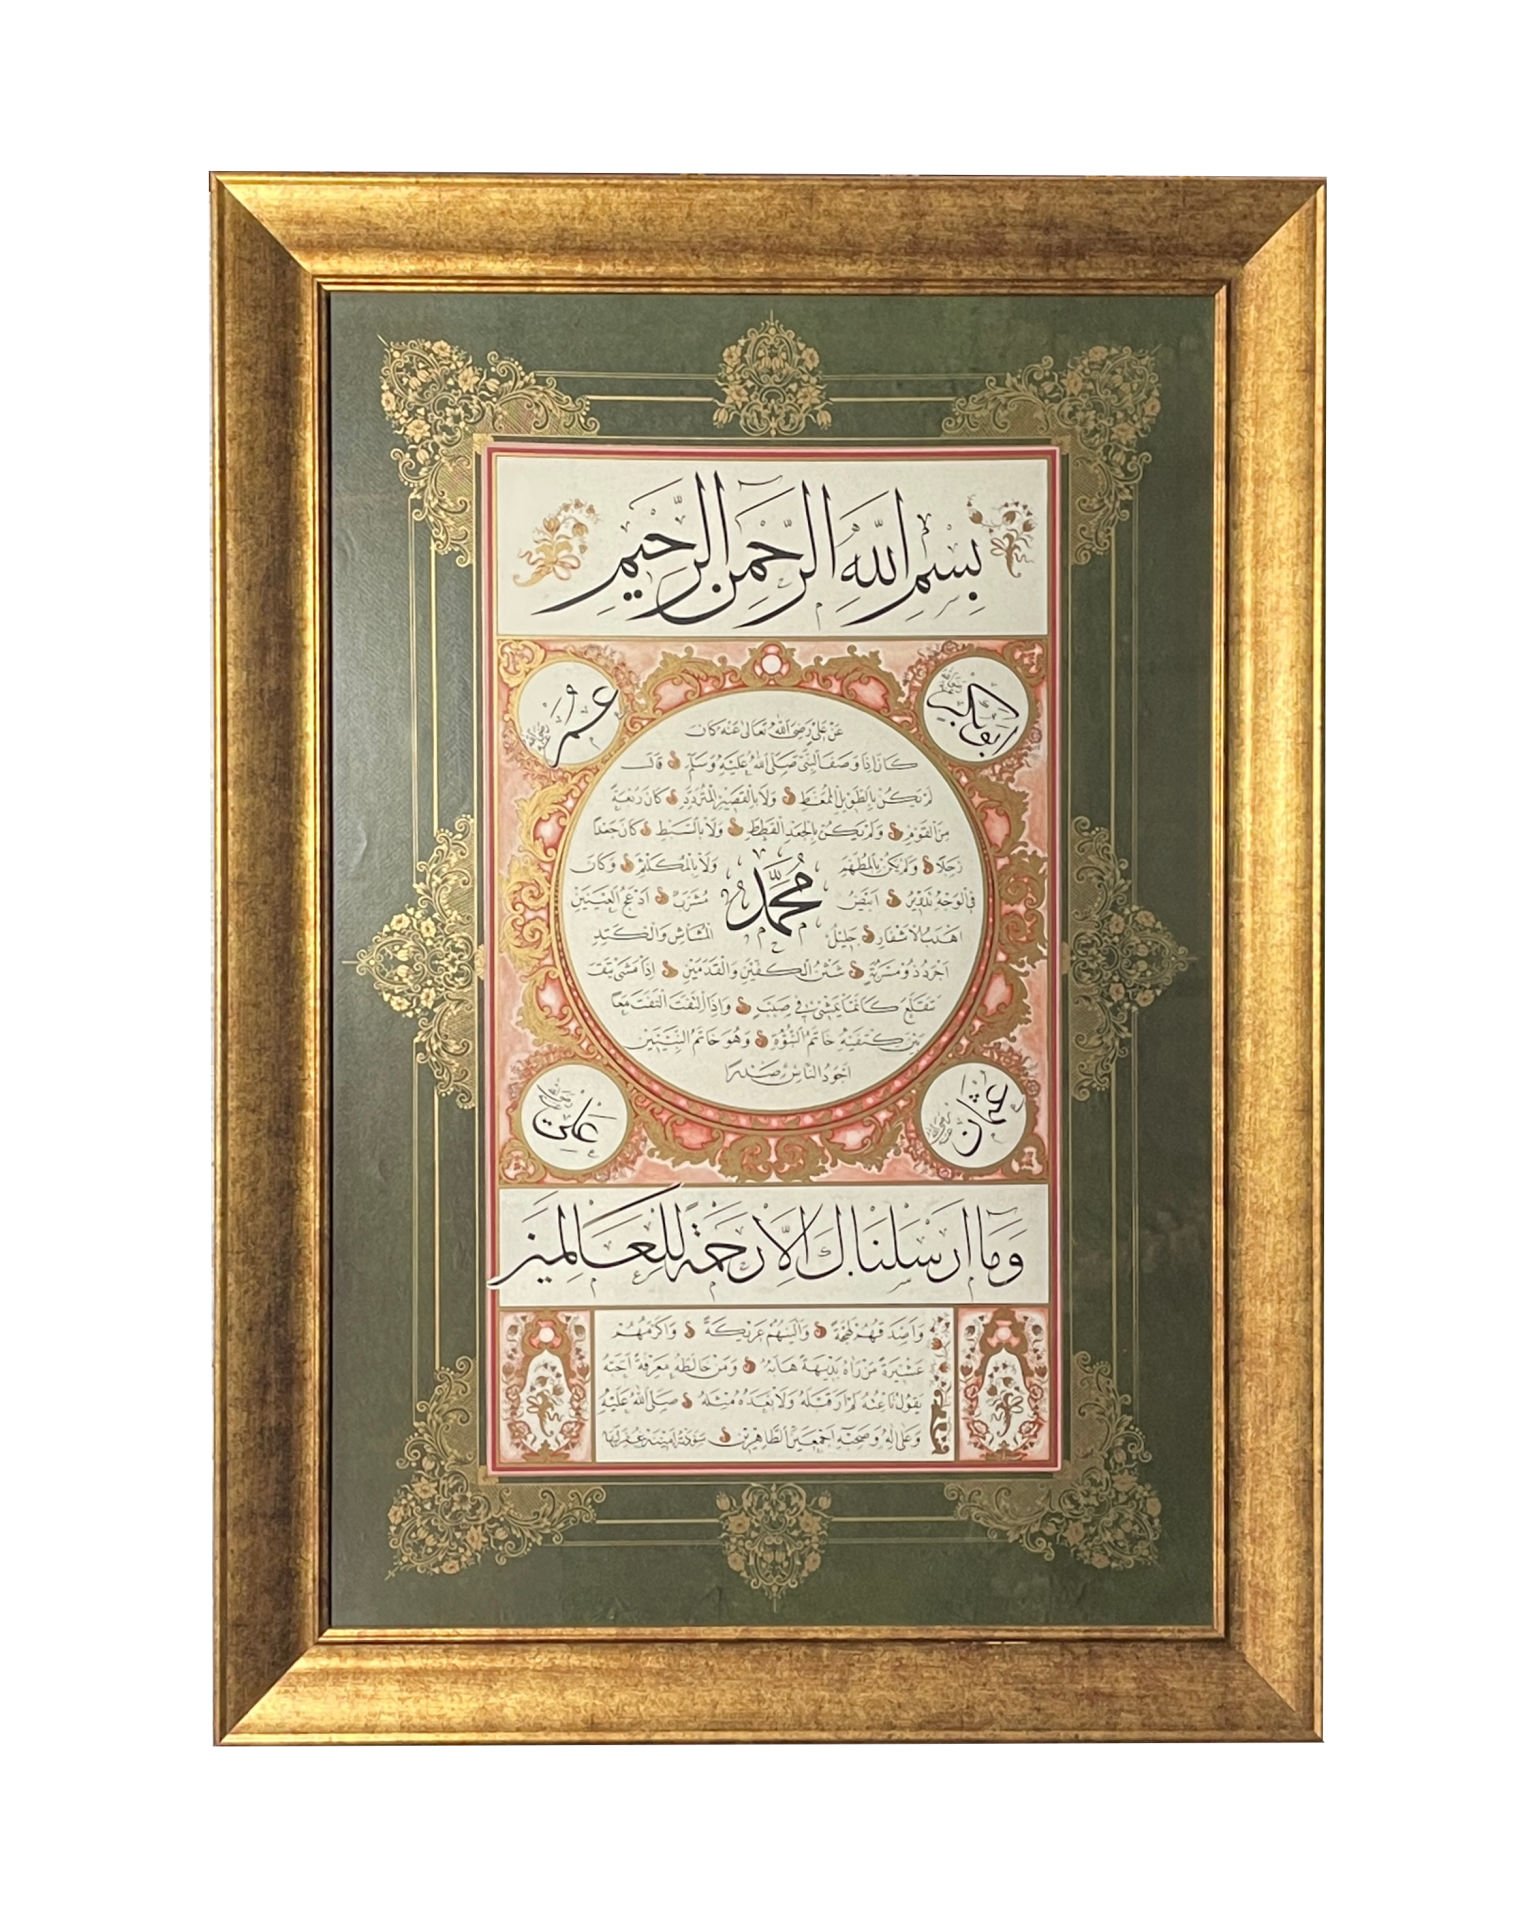 بِسْمِ اللّٰهِ الرَّحْمٰنِ الرَّحِيمِ
ابوبكر رضي الله عنه
عُمَر رضي الله عنه
عَنْ عَلِيٍّ رَضِيَ اللهُ تَعَالٰى عَنْهُ كَانَ
كَانَ اِذَا وَصَفَ النَّبِيَّ صَلَّى اللهُ عَلَيْهِ وَسَلَّمَ قَالَ
لَمْ يَكُنْ بِالطَّوِيلِ الْمُمَّغِطِ وَلَا بِالْقَصِيرِ الْمُتَرَدِّدِ كَانَ رَبْعَةً
مِنَ الْقَوْمِ وَلَمْ يَكُنْ بِالْجَعْدِ الْقَطَطِ وَلَا بِالسَّبْطِ كَانَ جَعْدًا
رَجِلًا وَلَمْ يَكُنْ بِالْمُطَهَّمِ وَلَا بِالْمُكَلْثَمِ وَكَانَ
مُحَمَّد
فِي الْوَجْهِ تَدْوِيرٌ اَبْيَضُ مُشْرَبٌ اَدْعَجُ الْعَيْنَيْنِ
اَهْدَبُ الْاَشْفَارِ جَلِيلُ الْمُشَاشِ وَالْكَتَدِ
اَجْرَدُ ذُو مَسْرُبَةٍ شَثْنُ الْكَفَّيْنِ وَالْقَدَمَيْنِ اِذَا مَشٰى
تَقَلَّعَ كَاَنَّمَا يَمْشِي فِي صَبَبٍ وَاِذَا الْتَفَتَ الْتَفَتَ مَعًا
بَيْنَ كَتِفَيْهِ خَاتَمُ النُّبُوَّةِ وَهُوَ خَاتَمُ النَّبِيِّينَ
اَجْوَدُ النَّاسِ صَدْرًا
عثمان رضي الله عنه
علي رضي الله عنه
وَمَا اَرْسَلْنَاكَ اِلَّا رَحْمَةً لِلْعَالَمِينَ
وَاَصْدَقُهُمْ لَهْجَةً وَاَلْيَنُهُمْ عَرِيكَةً وَاَكْرَمُهُمْ
عَشِيرَةً مَنْ رَاٰهُ بَدِيهَةً هَابَهُ وَمَنْ خَالَطَهُ مَعْرِفَةً اَحَبَّهُ
يَقُولُ نَاعِتُهُ لَمْ اَرَ قَبْلَهُ وَلَا بَعْدَهُ مِثْلَهُ صَلَّى اللهُ عَلَيْهِ
وَعَلٰى اٰلِهِ وَصَحْبِهِ اَجْمَعِينَ الطَّاهِرِينَ سَوَّدَهُ اَمِينَة غُفِرَ لَهَا